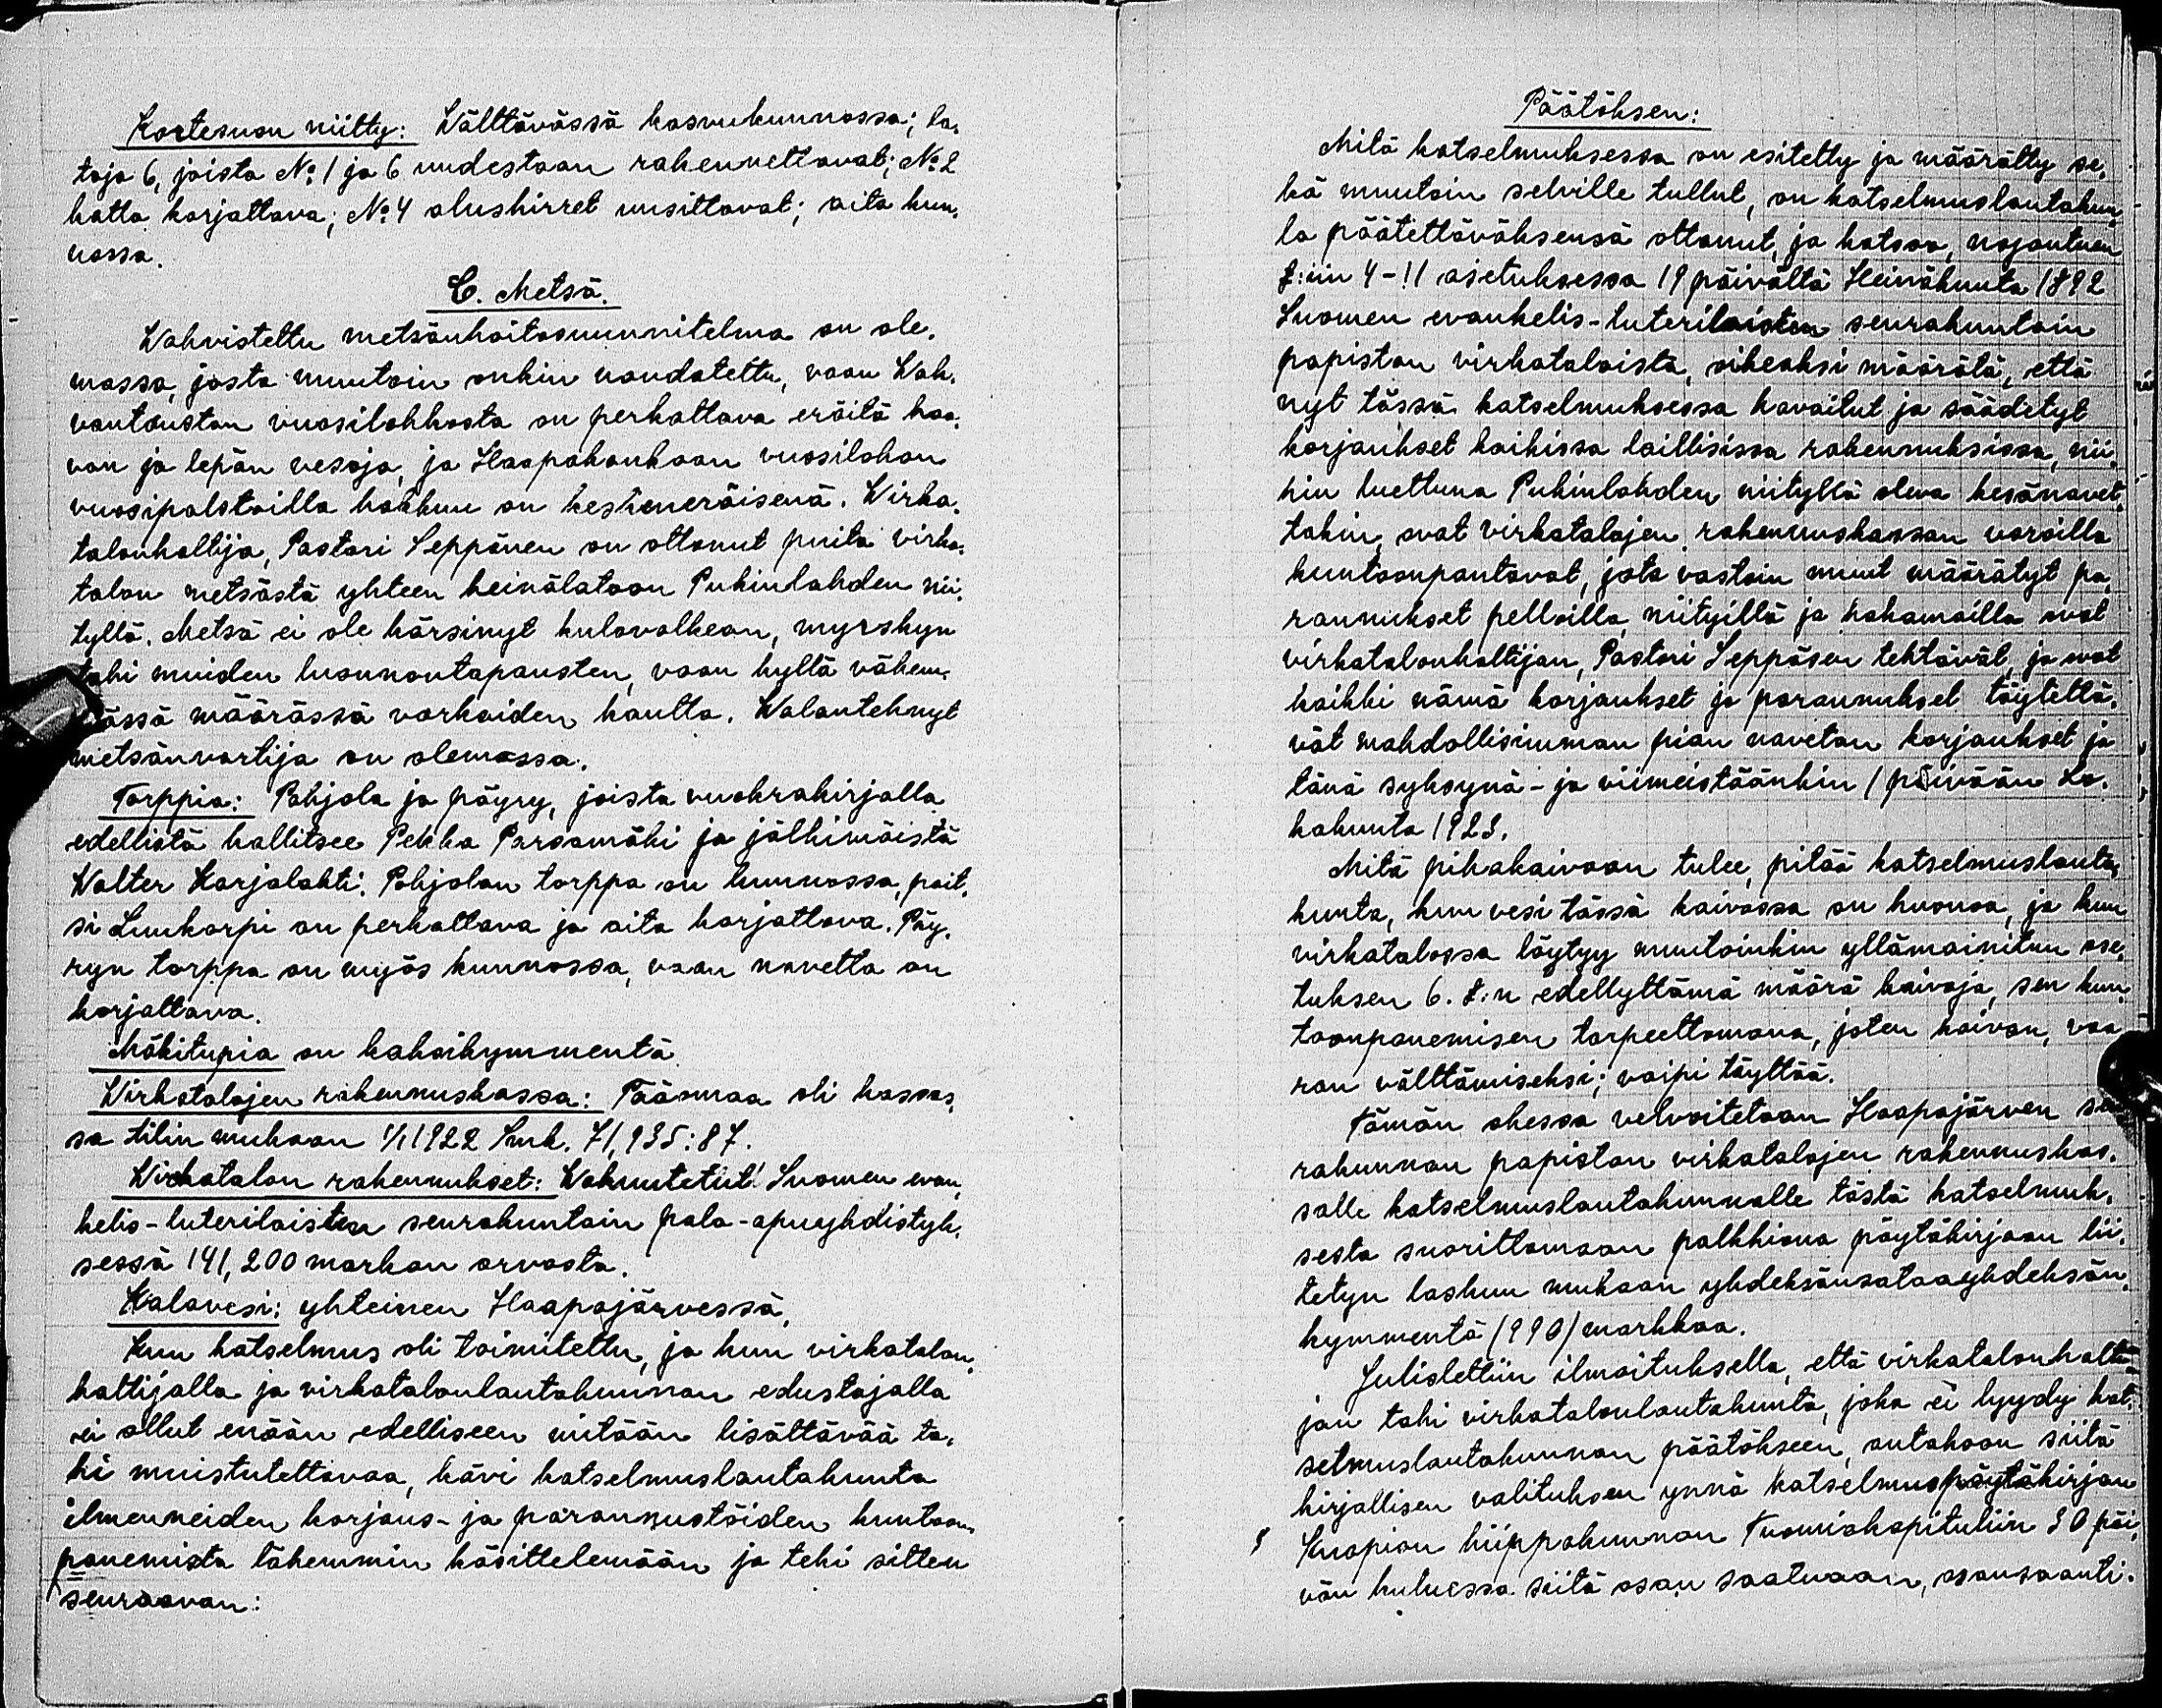 Kortesuon niitty: Wälttävässä kasvukunnossa; la-
toja 6, joista No 1 ja 6 uudestaan rakennettavat; No 2
katto korjattava; No 4 alushirret uusittavat; aita kun-
nossa.
C. Metsä.
Wahvistettu metsänhoitosuunnitelma on ole-
massa, josta muutoin onkin noudatettu, vaan Wah-
vantauston vuosilohkosta on perkattava eräitä haa-
van ja lepän vesoja, ja Haapakankaan vuosilohon
vuosipalstoilla hakkuu on keskeneräisenä. Wirka-
talonhaltija, Pastori Seppänen on ottanut puita virka-
talon metsästä yhteen heinälatoon Pukinlahden nii-
tyllä. Metsä ei ole kärsinyt kulovalkean, myrskyn
tahi muiden luonnontapausten, vaan kyllä vähem-
mässä määrässä varkaiden kautta. Walantehnyt
metsänvartija on olemassa.
Torppia: Pohjola ja pöyry, joista vuokrakirjalla
edellistä hallitsee Pekka Parsamäki ja jälkimäistä
Walter Karjalahti. Pohjolan torppa on kunnossa, pait-
si Luukorpi on perkattava ja aita korjattava. Pöy-
ryn torppa on myös kunnossa, vaan navetta on
korjattava.
Mäkitupia on kaksikymmentä
Wirkatalojen rakennuskassa: Pääomaa oli kassas-
sa tilin mukaan 1/1 1922 Smk. 71,935:87.
Wirkatalon rakennukset: Wakuutetut Suomen evan-
kelis-luterilaisten seurakuntain palo-apuyhdistyk-
sessä 141,200 markan arvosta.
Kalavesi: yhteinen Haapajärvessä,
Kun katselmus oli toimitettu, ja kun virkatalon-
haltijalla ja virkatalonlautakunnan edustajalla
ei ollut enään edelliseen mitään lisättävää ta-
hi muistutettavaa, kävi katselmuslautakunta
ilmenneiden korjaus- ja parannustöiden kuntoon-
panemista lähemmin käsittelemään ja teki sitten
seuraavan:
Päätöksen:
Mitä katselmuksessa on esitetty ja määrätty se-
kä muutoin selville tullut, on katselmuslautakun-
ta päätettäväksensä ottanut, ja katsoo, nojautuen
§:iin 4-11 asetuksessa 19 päivältä Heinäkuuta 1892
Suomen evankelis-luterilaisten seurakuntain
papiston virkataloista, oikeaksi määrätä, että
nyt tässä katselmuksessa havaitut ja säädetyt
korjaukset kaikissa laillisissa rakennuksissa, nii-
hin luettuna Pukinlahden niityllä oleva kesänavet-
takin, ovat virkatalojen rakennuskassan varoilla
kuntoonpantavat, jota vastoin muut määrätyt pa-
rannukset pelloilla, niityillä ja hakamailla ovat
virkatalonhaltijan, Pastori Seppäsen tehtävät, ja ovat
kaikki nämä korjaukset ja parannukset täytettä-
vät mahdollisimman pian navetan korjaukset jo
tänä syksynä - ja viimeistäänkin 1 päivään Lo-
kakuuta 1923.
Mitä pihakaivoon tulee, pitää katselmuslauta-
kunta, kun vesi tässä kaivossa on huonoa, ja kun
virkatalossa löytyy muutoinkin yllämainitun ase-
tuksen 6. §:n edellyttämä määrä kaivoja, sen kun-
toonpanemisen tarpeettomana, joten kaivon, vaa-
ran välttämiseksi, vaipi täyttää.
Tämän ohessa velvoitetaan Haapajärven seu-
rakunnan papiston virkatalojen rakennuskas-
salle katselmuslautakunnalle tästä katselmuk-
sesta suorittamaan palkkiona pöytäkirjaan lii-
tetyn laskun mukaan yhdeksänsataayhdeksän-
kymmentä (990) markkaa.
Julistettiin ilmoituksella, että virkatalonhalti-
jan tahi virkatalonlautakunta, joka ei tyydy kat-
selmuslautakunnan päätökseen, antakoon siitä
kirjallisen valituksen ynnä katselmuspöytäkirjan
Kuopion hiippakunnan Tuomiokapituliin 30 päi-
vän kuluessa siitä osan saatuaan, osansaanti-